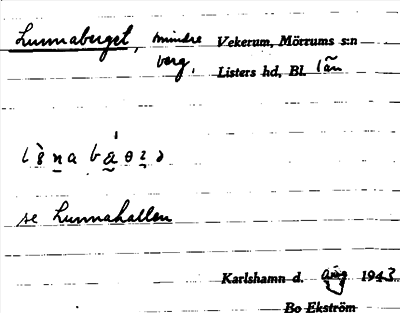 Lunnaberget, mindre Vekerum, Mörrums s:n
berg, Listers hd, Bl. län
se Lunnahallen
Karlshamn d. aug 1943
Bo Ekström